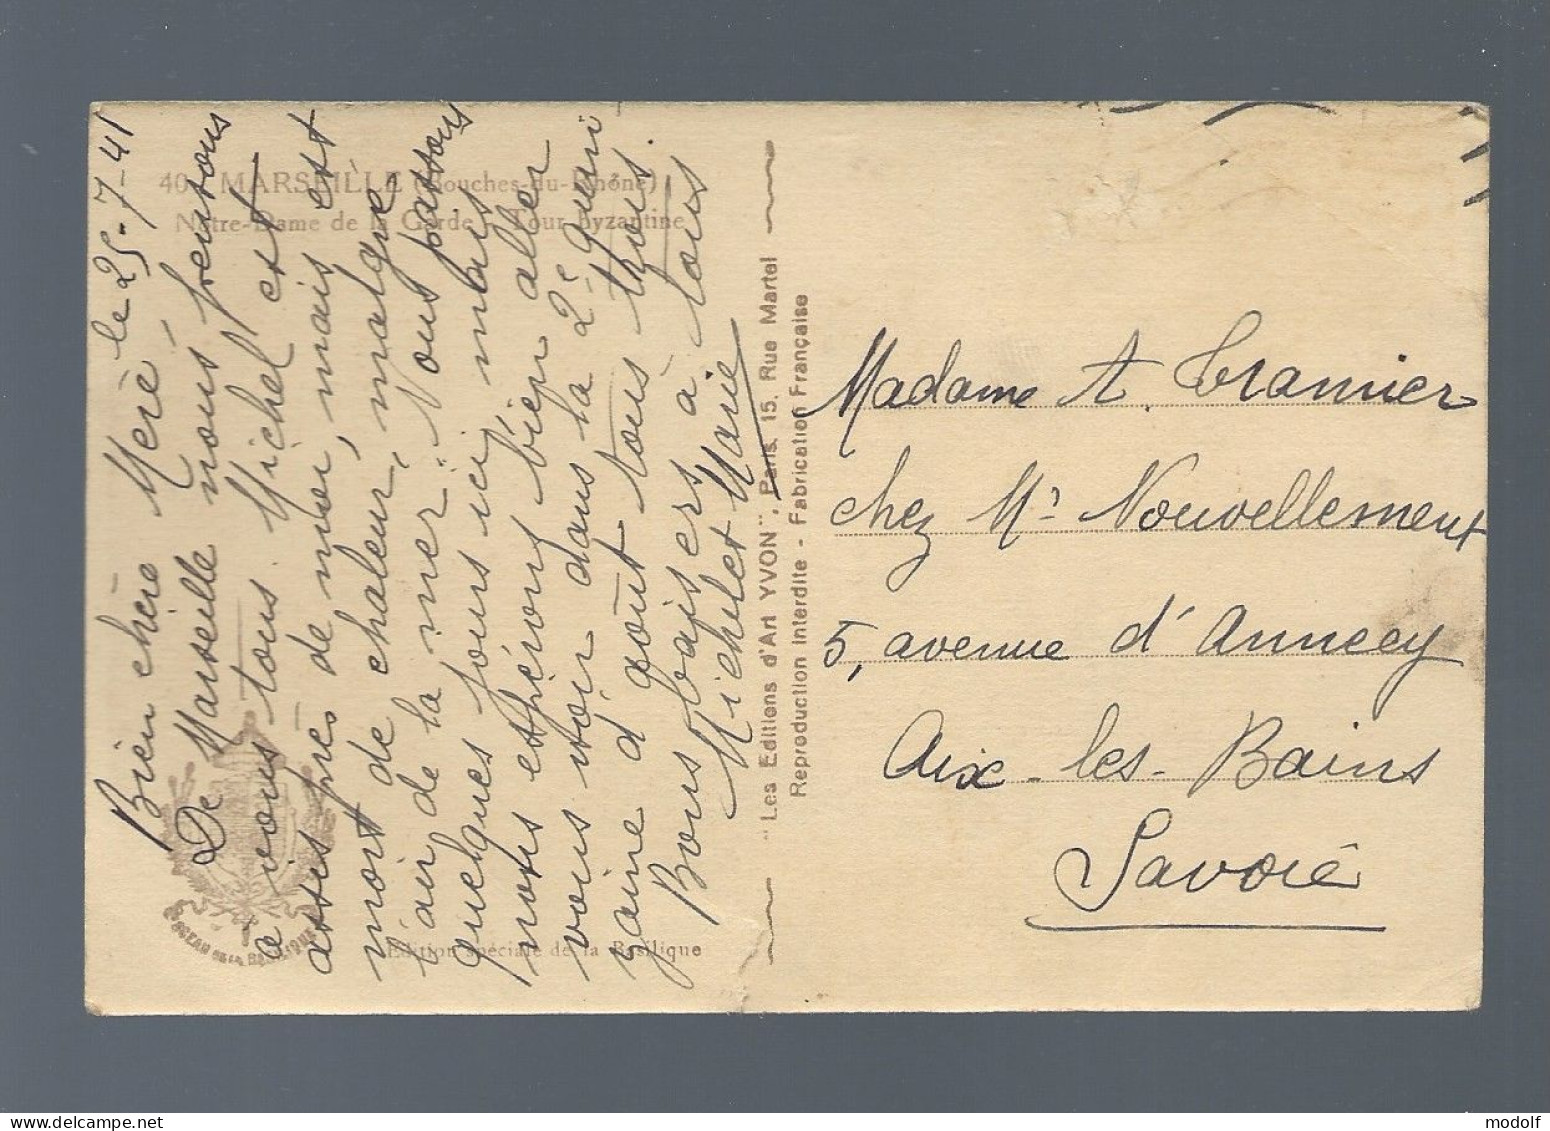 40 MARSEILLE (Bouches-du-Rhône)
Notre-Dame de la Garde Tour byzantine
le 25-7-41
Bien chère Mère,
De Marseille nous pensons
à vous tous. Michel est
assis près de moi, mais est
mort de chaleur, malgré
l'air de la mer. Nous passons
quelques jours ici, mais
nous espérons bien aller
vous voir dans la 2e quin
zaine d'août tous trois.
Bons baisers à tous
Michel et Marie
SCEAU DE LA BASILIQUE
Edition spéciale de la Basilique
"Les Editions d'Art YVON", Paris, 15, Rue Martel
Reproduction interdite - Fabrication Française
Madame A. Tramier
chez Mr Nouvellement
5, avenue d'Annecy
Aix-les-Bains
Savoie
modolf